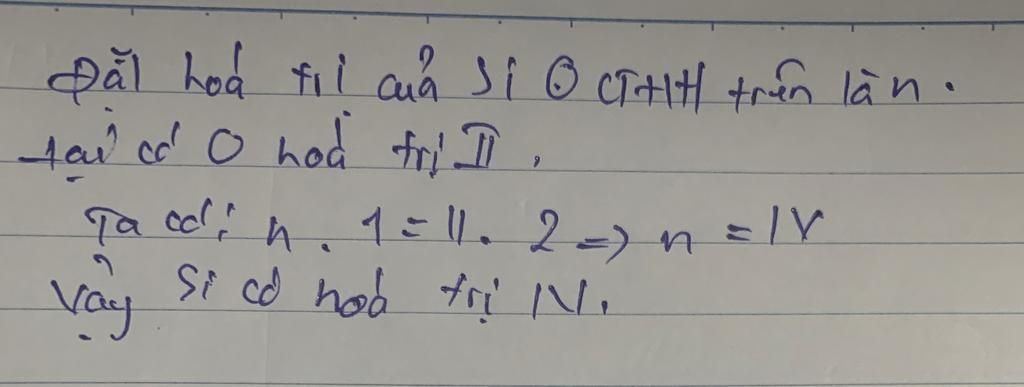 Đặt hoá trị của Si ở CTHH trên là n.
tại có O hoá trị II,
Ta có: n. 1 = II. 2 => n = IV
Vậy Si có hoá trị IV.